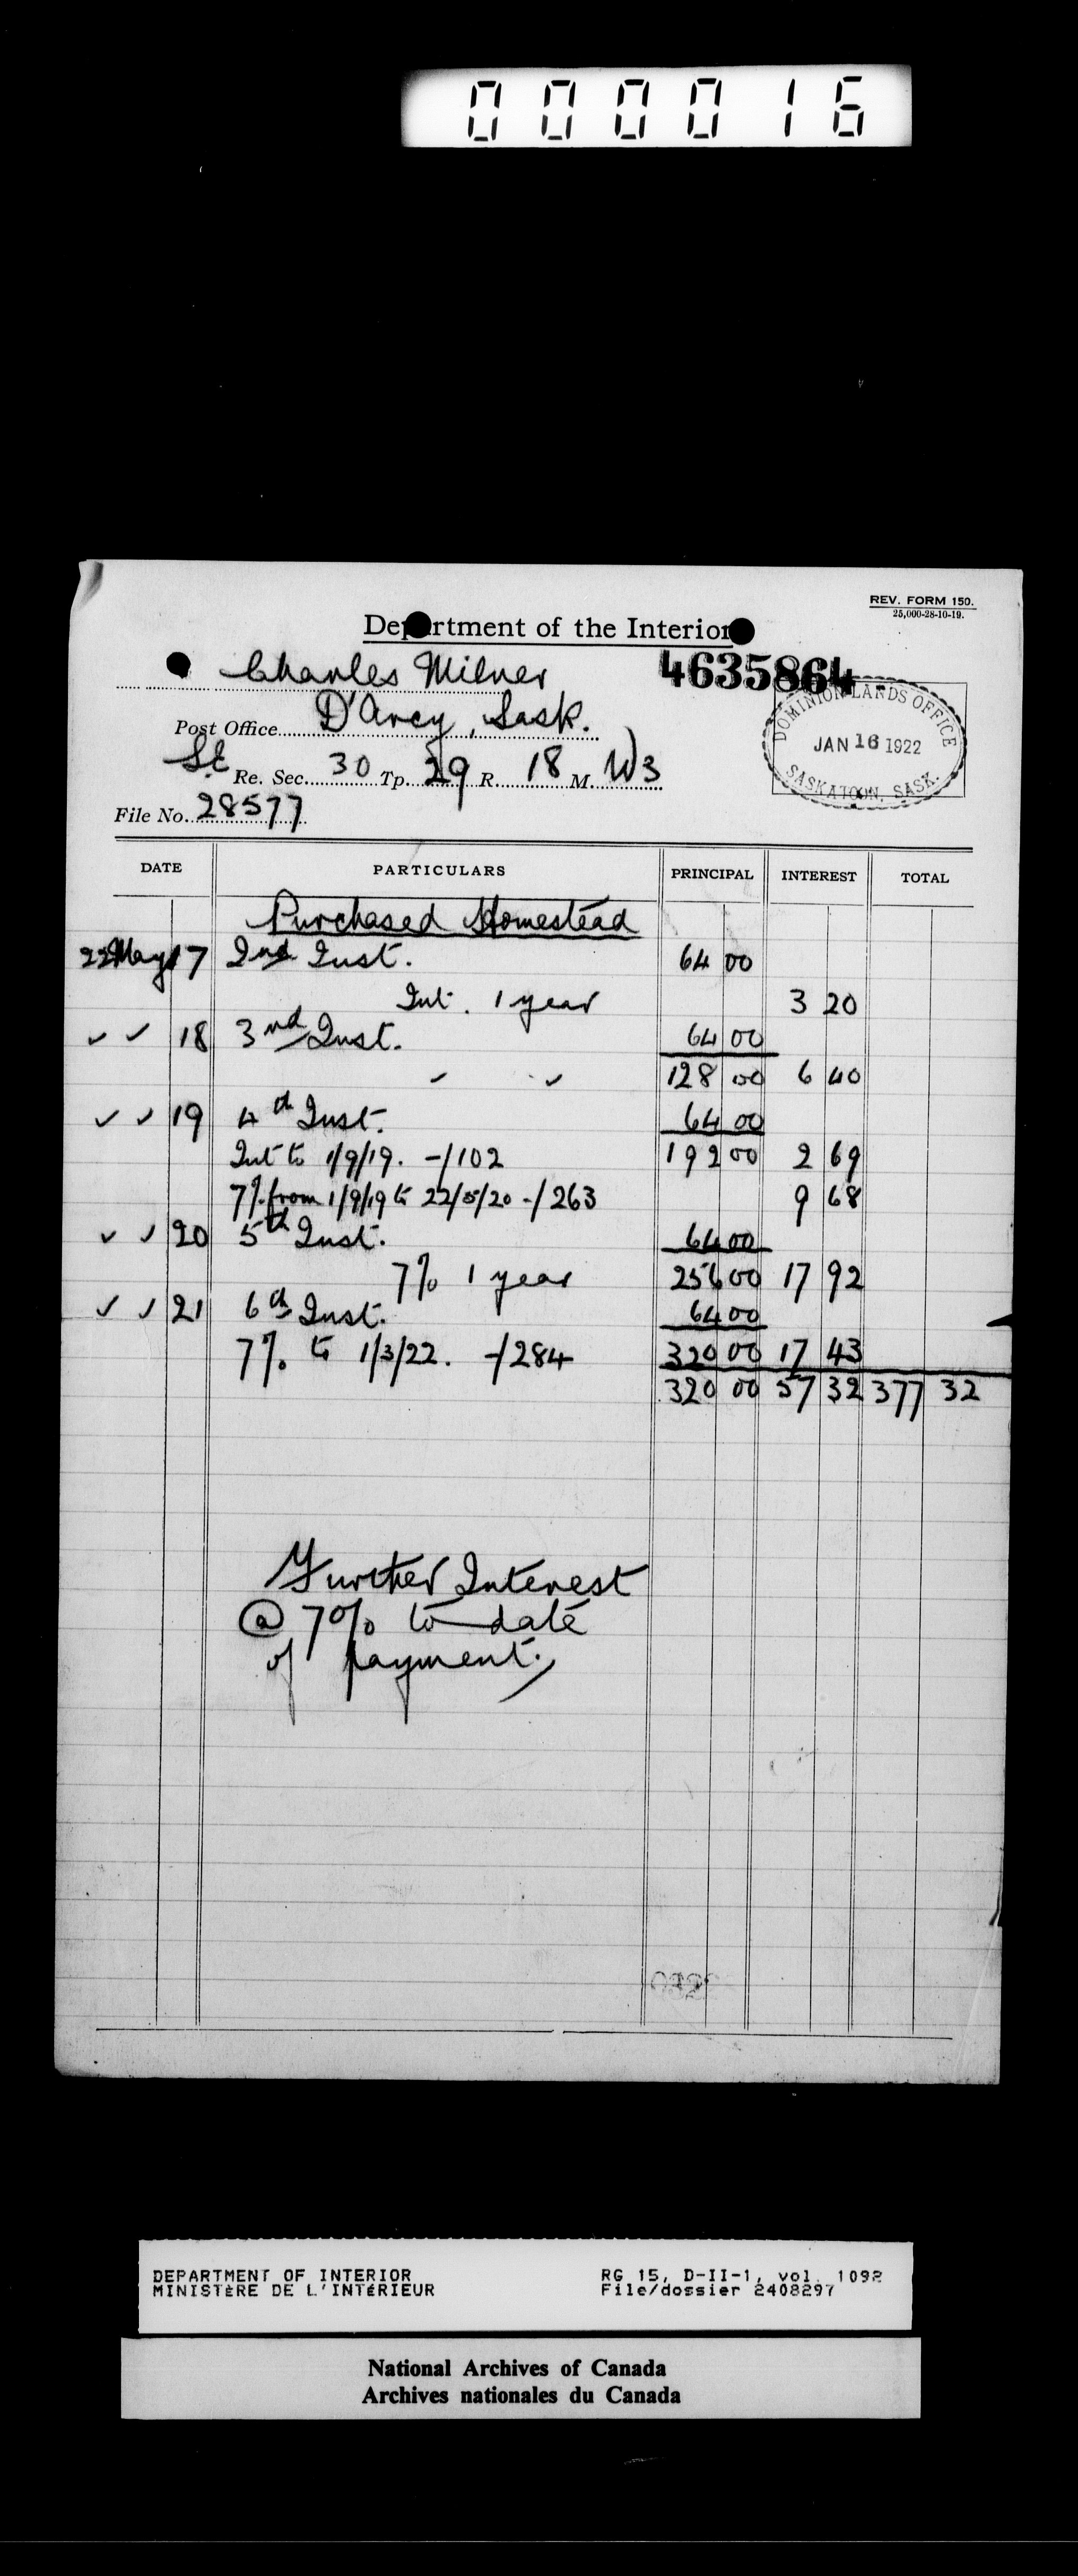 000016
REV. FORM 150.
25,000-28-10-19.
Department of the Interior
Charles Milner 4635864
Post Office D'Arcy, Sask.
DOMINION LANDS OFFICE
JAN 16 1922
SASKATOON, SASK.
S.E Re. Sec. 30 Tp. 29 R. 18 M. W3
File No. 28577
DATE PARTICULARS PRINCIPAL INTEREST TOTAL
Purchased Homestead
22 May 17 2nd Inst. 64 00
Int. 1 year 3 20
✓ ✓ 18 3nd Inst. 64 00
✓ ✓ 128 00 6 40
✓ ✓ 19 4th Inst. 64 00
Int to 1/9/19. -/102 192 00 2 69
7% from 1/9/19 to 22/5/20 -/263 9 68
✓ ✓ 20 5th Inst. 64 00
7% 1 year 256 00 17 92
✓ ✓ 21 6th Inst. 64 00
7% to 1/3/22. -/284 320 00 17 43
320 00 57 32 377 32
Further Interest
@ 7% to date
of payment.
DEPARTMENT OF INTERIOR RG 15, D-II-1, vol. 1092
MINISTÈRE DE L'INTÉRIEUR File/dossier 2408297
National Archives of Canada
Archives nationales du Canada